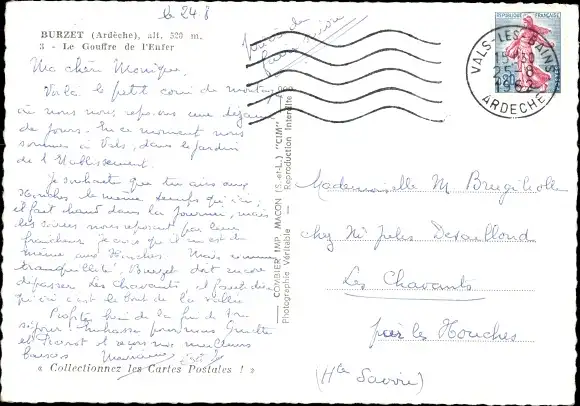 le 24 8
BURZET (Ardèche), alt. 520 m.
3 - Le Gouffre de l'Enfer
Ma chère Monique,
Voilà le petit coin de montagne
où nous nous reposons une dizaine
de jours. En ce moment nous
sommes à Vals, dans le jardin
de l'Etablissement.
Je souhaite que tu aies aux
Houches le même temps qu'ici,
il fait chaud dans la journée, mais
les soirées nous reposent par leur
fraîcheur. Je crois qu'il en est de
même aux Houches. Mais comme
tranquillité, Burzet doit encore
dépasser Les Chavants, il faut dire
qu'ici c'est le bout de la vallée.
Profite bien de la fin de ton
séjour. Embrasse pour nous
et Pierrot et reçois nos meilleurs
baisers
« Collectionnez les Cartes Postales ! »
COMBIER IMP. MACON (S.-et-L.) "CIM"
Photographie Véritable — Reproduction Interdite
REPUBLIQUE FRANÇAISE
0,20
VALS-LES-BAINS
19 30
1962
ARDECHE
Mademoiselle M
chez Mr Jules
Les Chavants
par les Houches
(Hte Savoie)